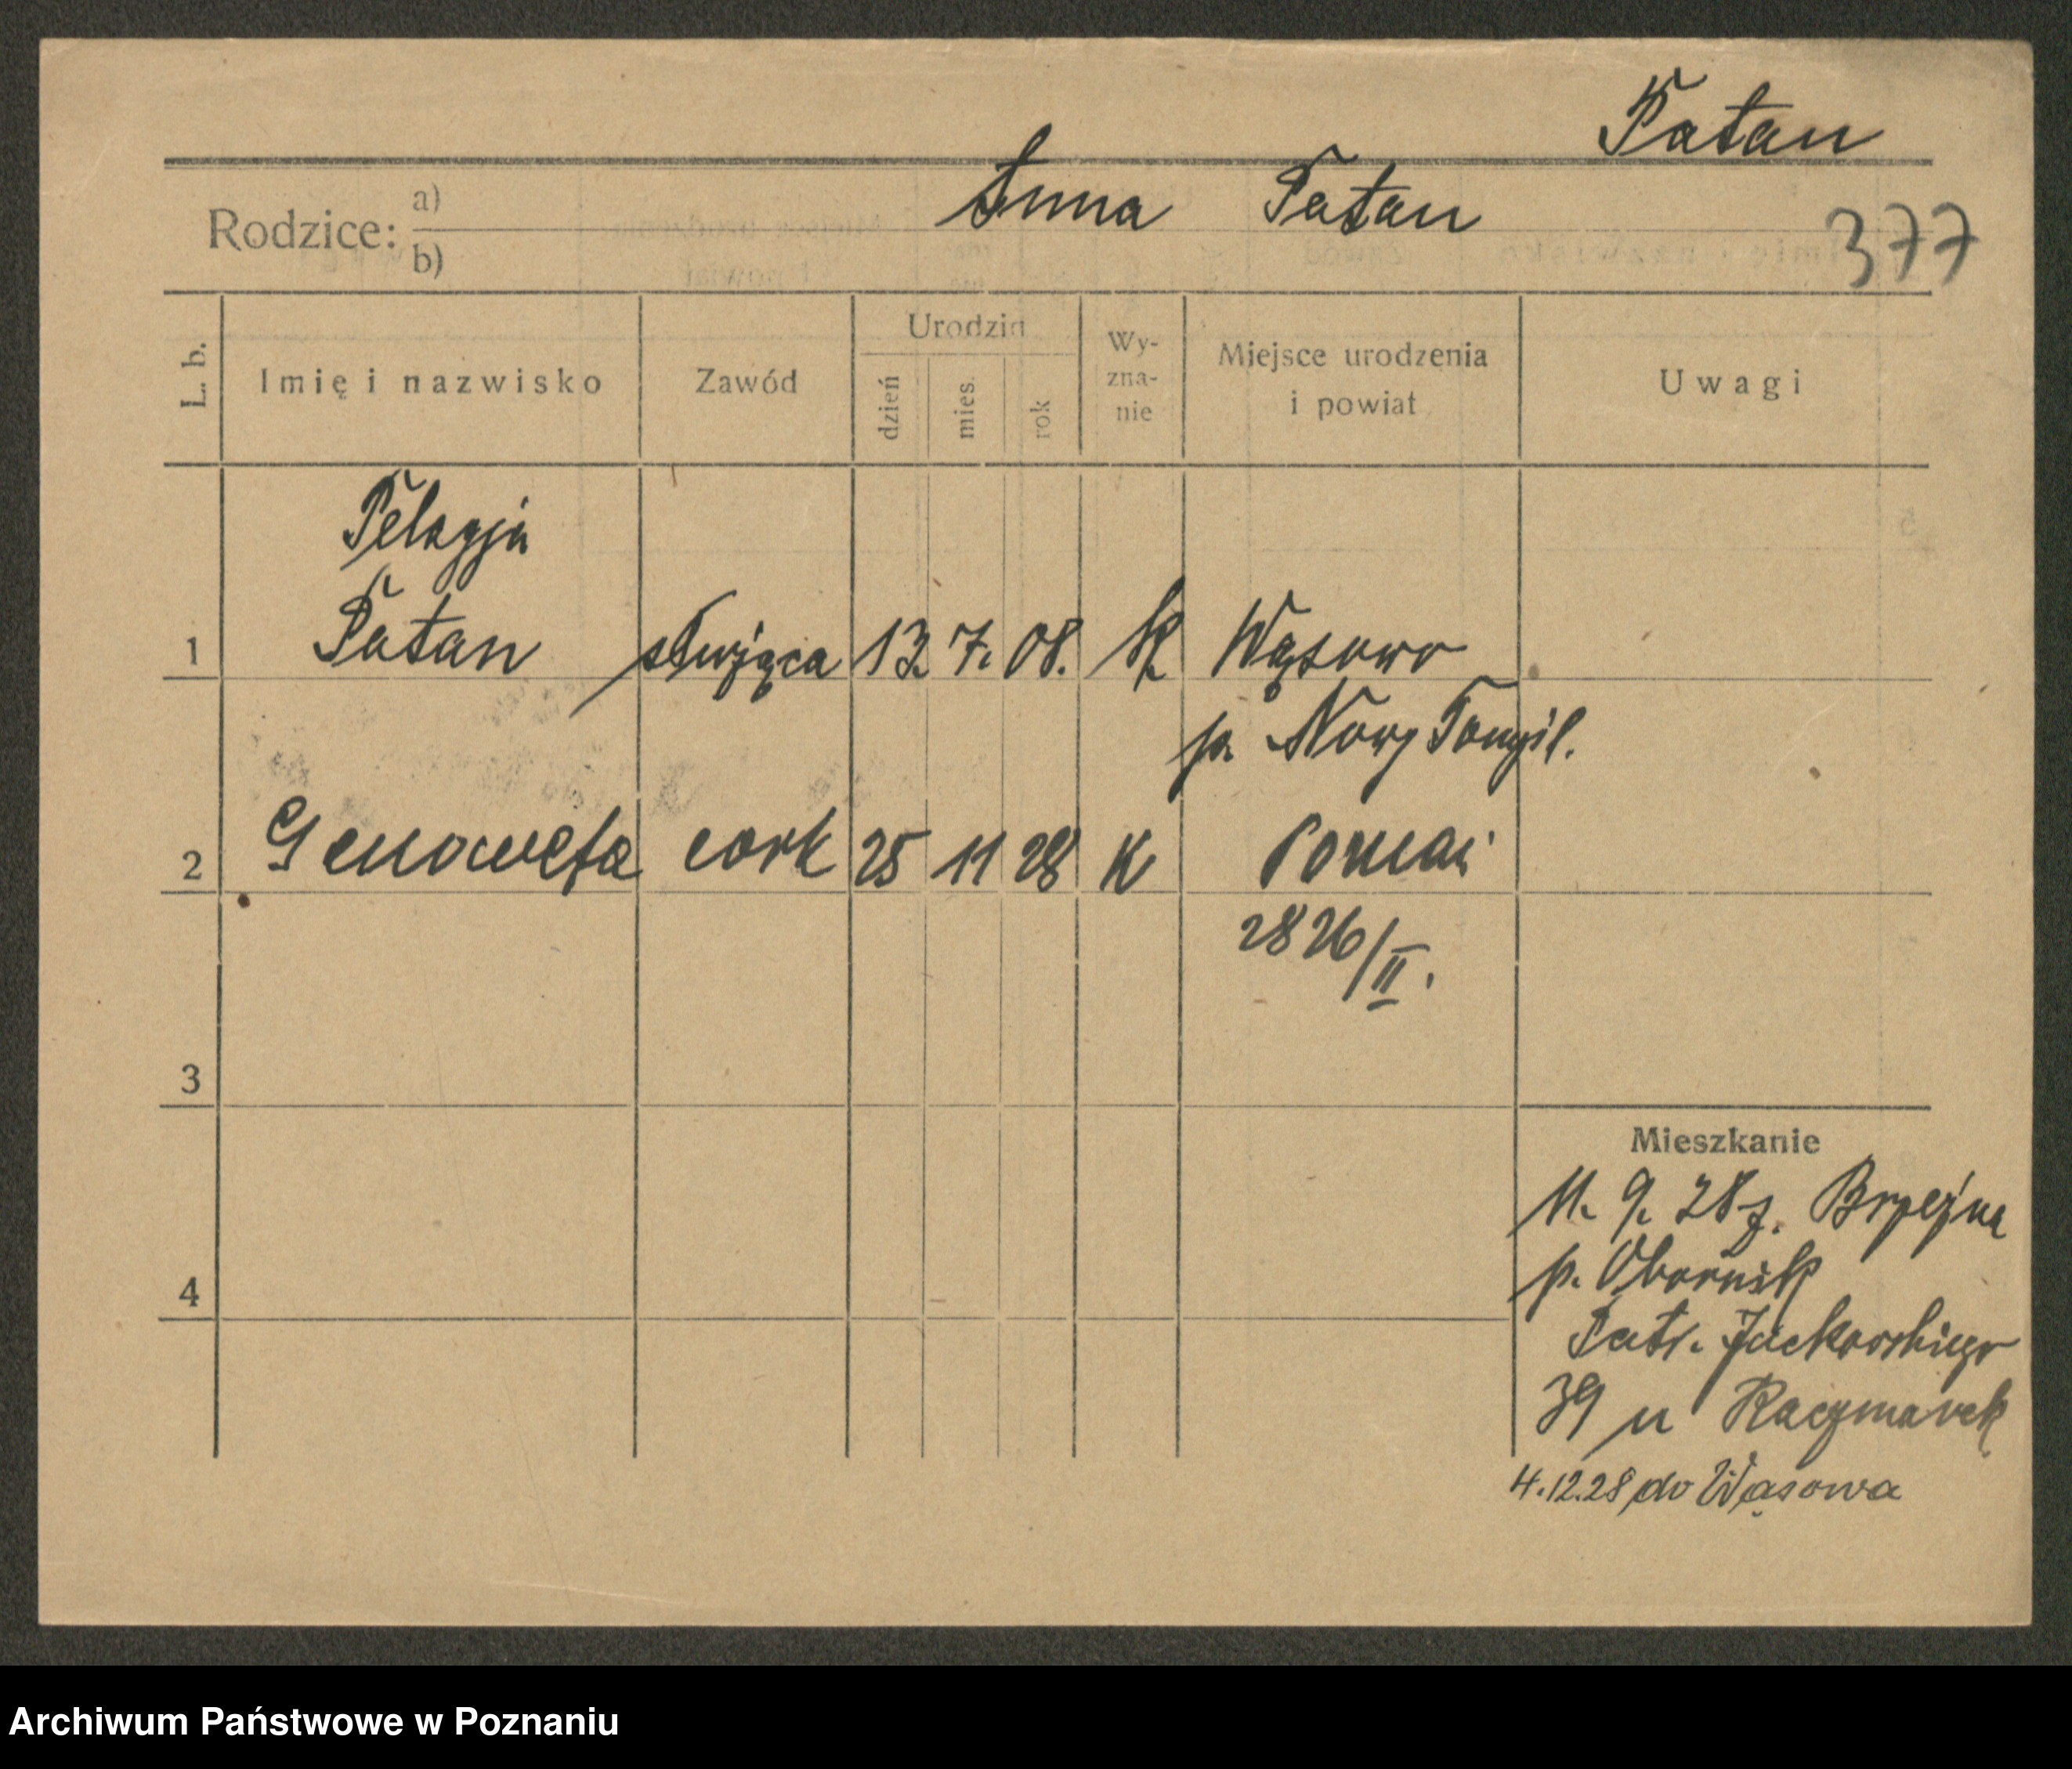 Patan
Anna Patan
Rodzice: a)
b)
377
L. b.
Imię i nazwisko
Zawód
Urodzin
dzień
mies.
rok
Wy-
zna-
nie
Miejsce urodzenia
i powiat
Uwagi
Pelagja
1 Patan służąca 13. 7. 08. K Wąsowo
p. Nowy Tomyśl.
2 Genowefa cork 25 11 28 K Poznań
2826/II.
3
Mieszkanie
11. 9. 28 z. Brzeźna
p. Obornik
4
Patr. Jackowskiego
39 u Kaczmarek
4.12.28 do Wąsowa
Archiwum Państwowe w Poznaniu